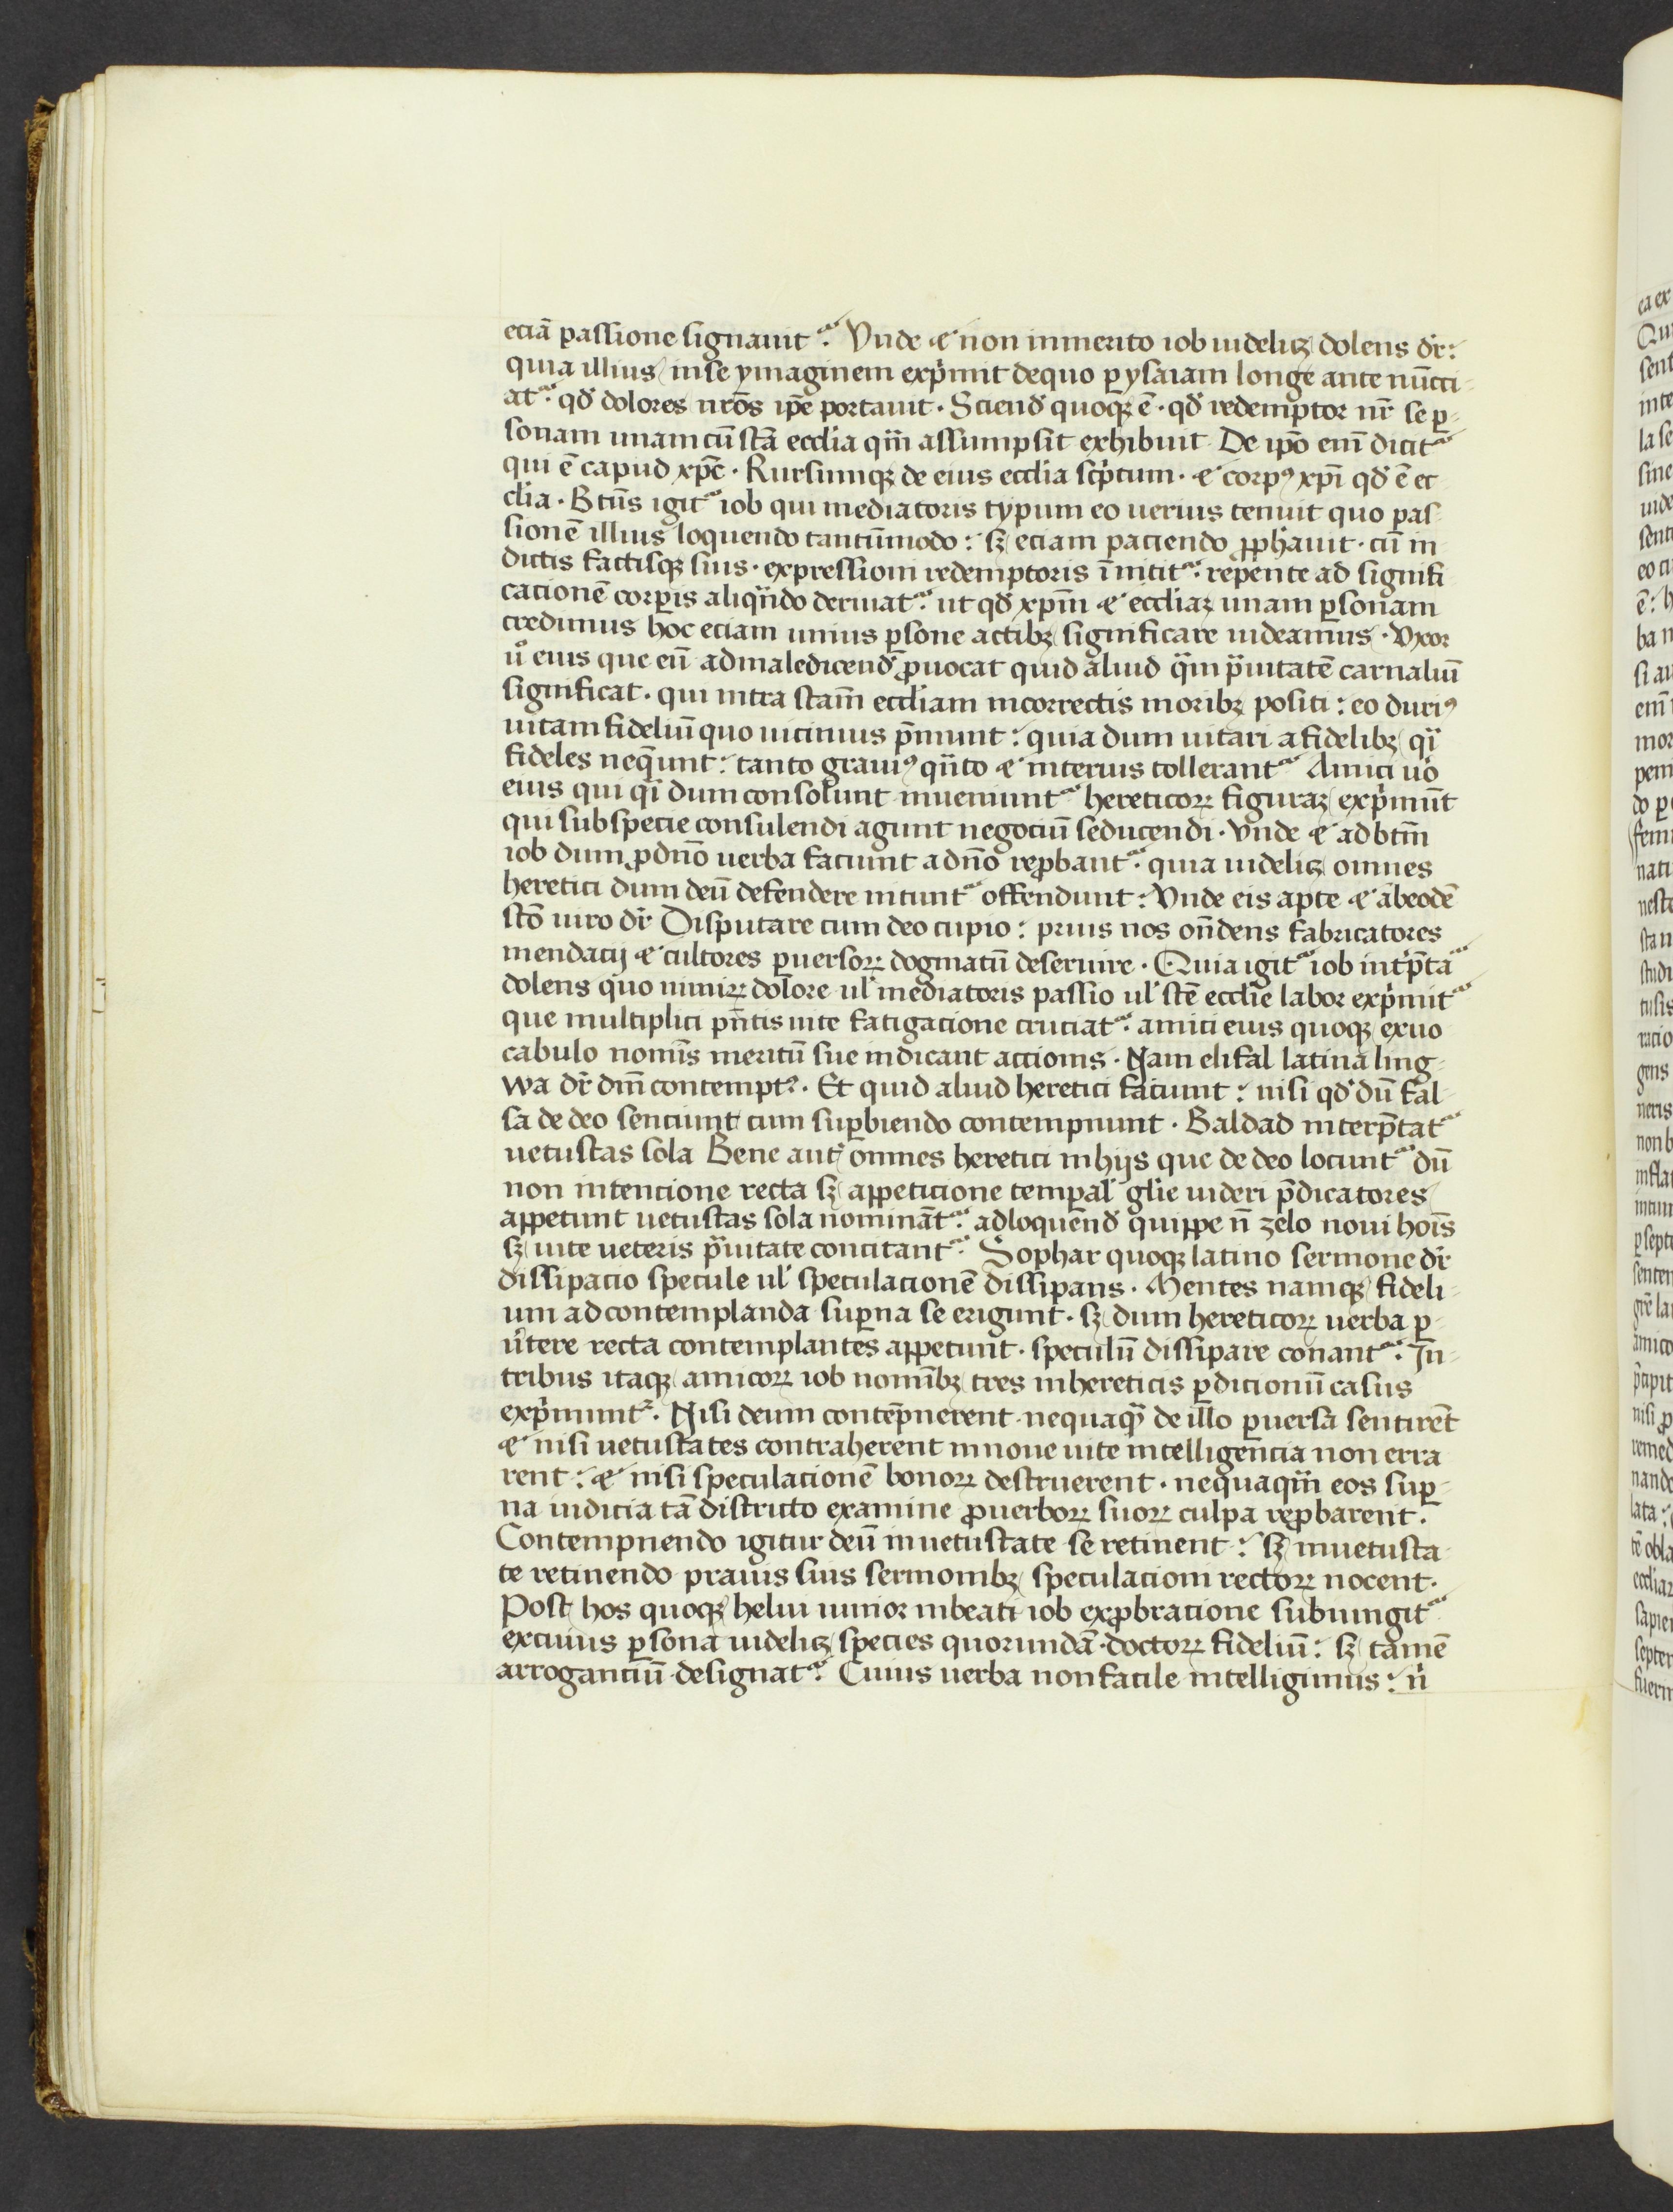 eciā passione signauit᷑. Vnde ⁊ non inmerito iob uidelicꝫ dolens dr̄:
quia illius inse ymaginem exp̄mit dequo ꝑ ysaiam longe ante nūcci-
at᷑. qđ dolores nr̄os ip̄e portauit. Sciend̄ quoqꝫ ē. qđ redemptor nr̄ se ꝑ-
sonam unam cū sc̄a eccl̄ia qm̄ assumpsit exhibuit. De ip̄o eni᷑ dicit᷑
qui ē capud xp̄c. Rursumqꝫ de eius eccl̄ia sc̄ptum. ⁊ corpꝰ xp̄i qđ ē ec
cl̄ia. Btūs igit᷑ iob qui mediatoris typum eo uerius tenuit quo pas-
sionē illius loquendo tantūmodo: sꝫ eciam paciendo ꝓph̄auit. cū in
dictis factisqꝫ suis. expressioni redemptoris īnitit᷑. repente ad signifi
cacionē corꝑis aliqn̄do deriuat᷑. ut qđ xp̄m ⁊ eccl̄iaꝫ unam ꝑsonam
credimus hoc eciam unius ꝑsone actibꝫ significare uideamus. Vxor
ūo eius que eū admaledicend̄ ꝓuocat quid aliud qͣm pͣuitatē carnaliū
significat. qui intra sc̄am eccl̄iam incorrectis moribꝫ positi: eo duriꝰ
uitam fideliū quo uicinius p̄munt: quia dum uitari a fidelibꝫ qͣi
fideles neq̄unt: tanto grauiꝰ qͣnto ⁊ interius tollerant᷑ Amici ūo
eius qui qͣi dum consolunt inueniunt᷑ hereticoꝝ figuraꝫ exp̄mūt
qui subspecie consulendi agunt negociū seducendi. Vnde ⁊ ad btm̄
iob dum ꝓ dn̄o uerba faciunt a dn̄o reꝓbant᷑. quia uidelicꝫ omnes
heretici dum deū defendere nitunt᷑ offendunt: Vnde eis apte ⁊ abeodē
sc̄o uiro dr̄ Disputare cum deo cupio: prius uos on̄dens fabricatores
mendacij ⁊ cultores ꝑuersoꝝ dogmatū deseruire. Quia igit᷑ iob int̄p̄tat᷑
dolens quo nimiꝝ dolore ul̄ mediatoris passio ul̄ sc̄e eccl̄ie labor exp̄mit᷑
que multiplici pn̄tis uite fatigacione cruciat᷑. amici eius quoqꝫ exuo
cabulo nomīs meritū sue indicant accionis. Nam elifal latina ling-
wa dr̄ dm̄ contemptꝰ. Et quid aliud heretici faciunt: nisi qđ dū fal-
sa de deo senciunt eum suꝑbiendo contempnunt. Baldad interp̄tat᷑
uetustas sola Bene aut̄ omnes heretici inhijs que de deo locunt᷑ dū
non intencione recta sꝫ appeticione tempal̄ gl̄ie uideri p̄dicatores
appetunt uetustas sola nominant᷑. adloquend̄ quippe n̄ zelo noui hoīs
sꝫ uite ueteris pͣuitate concitant᷑. Sophar quoqꝫ latino sermone dr̄
dissipacio specule ul̄ speculacionē dissipans. Mentes namqꝫ fideli-
um ad contemplanda suꝑna se erigunt. sꝫ dum hereticoꝝ uerba ꝑ-
ūtere recta contemplantes appetunt. speculū dissipare conant᷑. In-
tribus itaqꝫ amicoꝝ iob nomībꝫ tres inhereticis ꝑdicionū casus
exp̄munt᷑. Nisi deum contēpnerent nequaqͣ de illo ꝑuersa sentirēt
⁊ nisi uetustates contraherent innoue uite intelligencia non erra
rent: ⁊ nisi speculacionē bonoꝝ destruerent. nequaqͣm eos suꝑ-
na iudicia tā districto examine ꝓ uerboꝝ suoꝝ culpa reꝓbarent.
Contempnendo igitur deū inuetustate se retinent: sꝫ inuetusta
te retinendo prauis suis sermonibꝫ speculacioni rectoꝝ nocent.
Post hos quoqꝫ heliu iunior inbeati iob exꝓbracione subiungit᷑
excuius ꝑsona uidelicꝫ species quorundā doctoꝝ fideliū: sꝫ tamē
arroganciū designat᷑. Cuius uerba non facile intelligimus: n̄